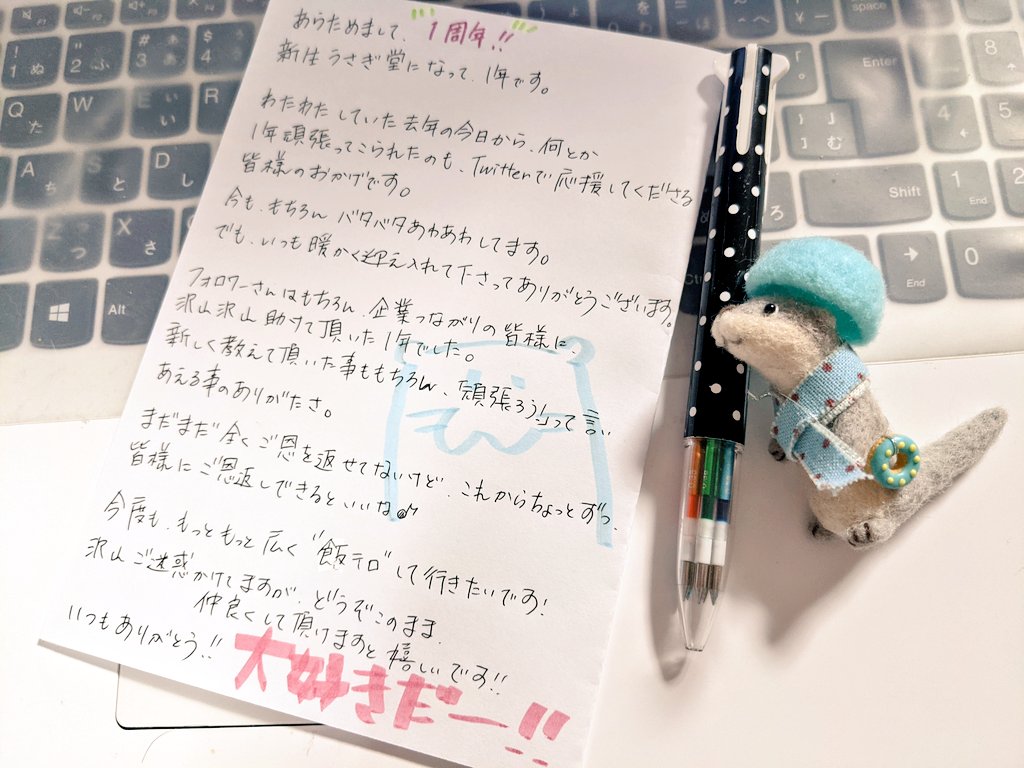 あらためまして、1周年!!
新生うさぎ堂になって、1年です。
わたわたしていた去年の今日から、何とか
1年頑張ってこられたのも、Twitterで応援してくださる
皆様のおかげです。
今も、もちろん バタバタあわあわしてます。
でも、いつも暖かく迎え入れて下さってありがとうございます。
フォロワーさんはもちろん、企業つながりの皆様に、
沢山沢山助けて頂いた1年でした。
新しく教えて頂いた事ももちろん、「頑張ろう!」って言い
あえる事のありがたさ。
まだまだ全くご恩を返せてないけど、これからちょっとずつ、
皆様にご恩返しできるといいな♪
今度も、もっともっと広く"飯テロ"して行きたいです!
沢山ご迷惑かけてますが、どうぞこのまま、
仲良くして頂けますと嬉しいです!!
いつもありがとう!!
大好きだー!!
Q
た
W
て
E
い
R
A
ち
S
と
D
し
Z
X
さ
Alt
Enter
Shift
End
space